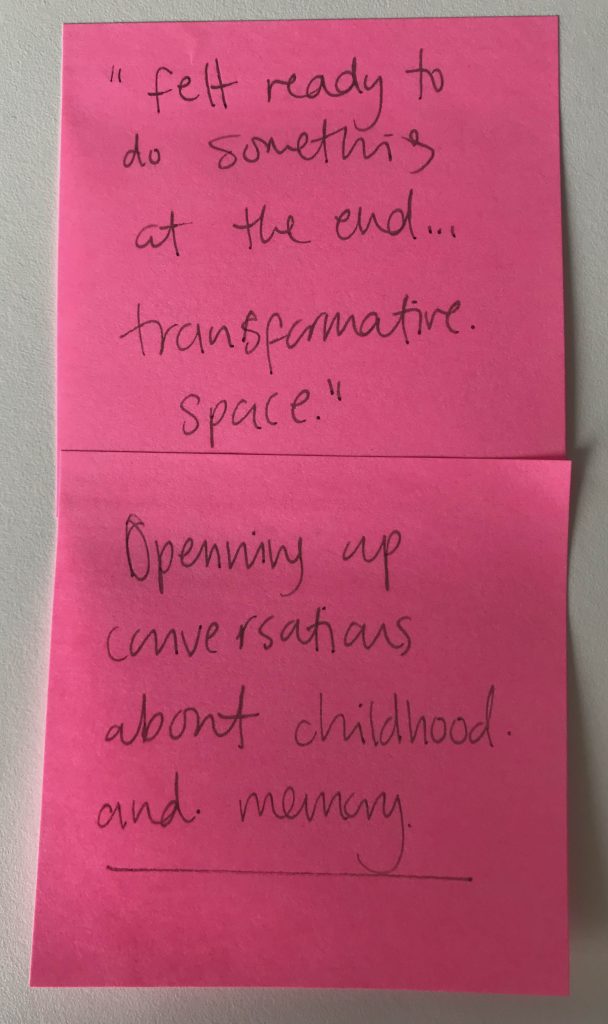 "felt ready to
do something
at the end...
transformative.
space."
Openning up
conversations
about childhood.
and. memory.